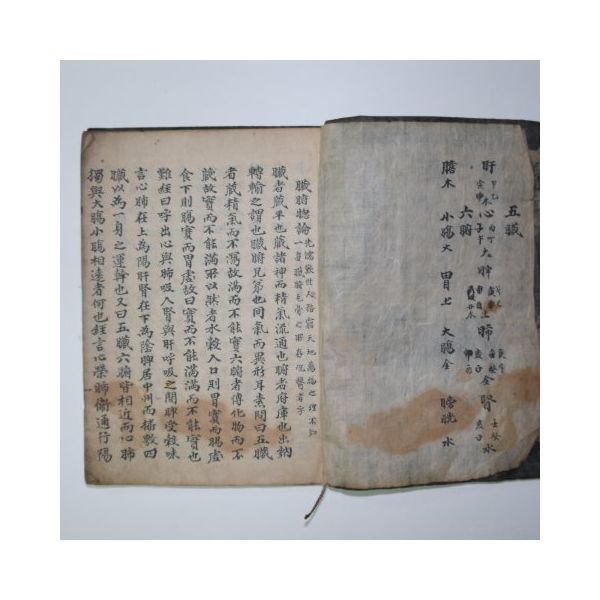 五臟
肝木 心火 脾土 肺金 腎水
六腑
膽木 小腸火 胃土 大腸金 膀胱水
臟腑總論
先儒嘆世人務窮天地萬物之理不知
一身臟腑毛
臟者藏平也藏諸神而精氣流通也腑者府庫也出納
轉輸之謂也臟腑兄弟也同氣而異形耳素問曰五臟
者藏精氣而不瀉故滿而不能實六腑者傳化物而不
藏故實而不能滿所以然者水穀入口則胃實而腸虛
食下則腸實而胃虛故曰實而不能滿滿而不能實也
難經曰呼出心與肺吸入腎與肝呼吸之間脾受穀味
言心肺在上為陽肝腎在下為陰脾居中州而播敷四
臟以為一身之運幹也又曰五臟六腑皆相近而心肺
獨與大腸小腸相遠者何也經言心榮肺衛通行陽